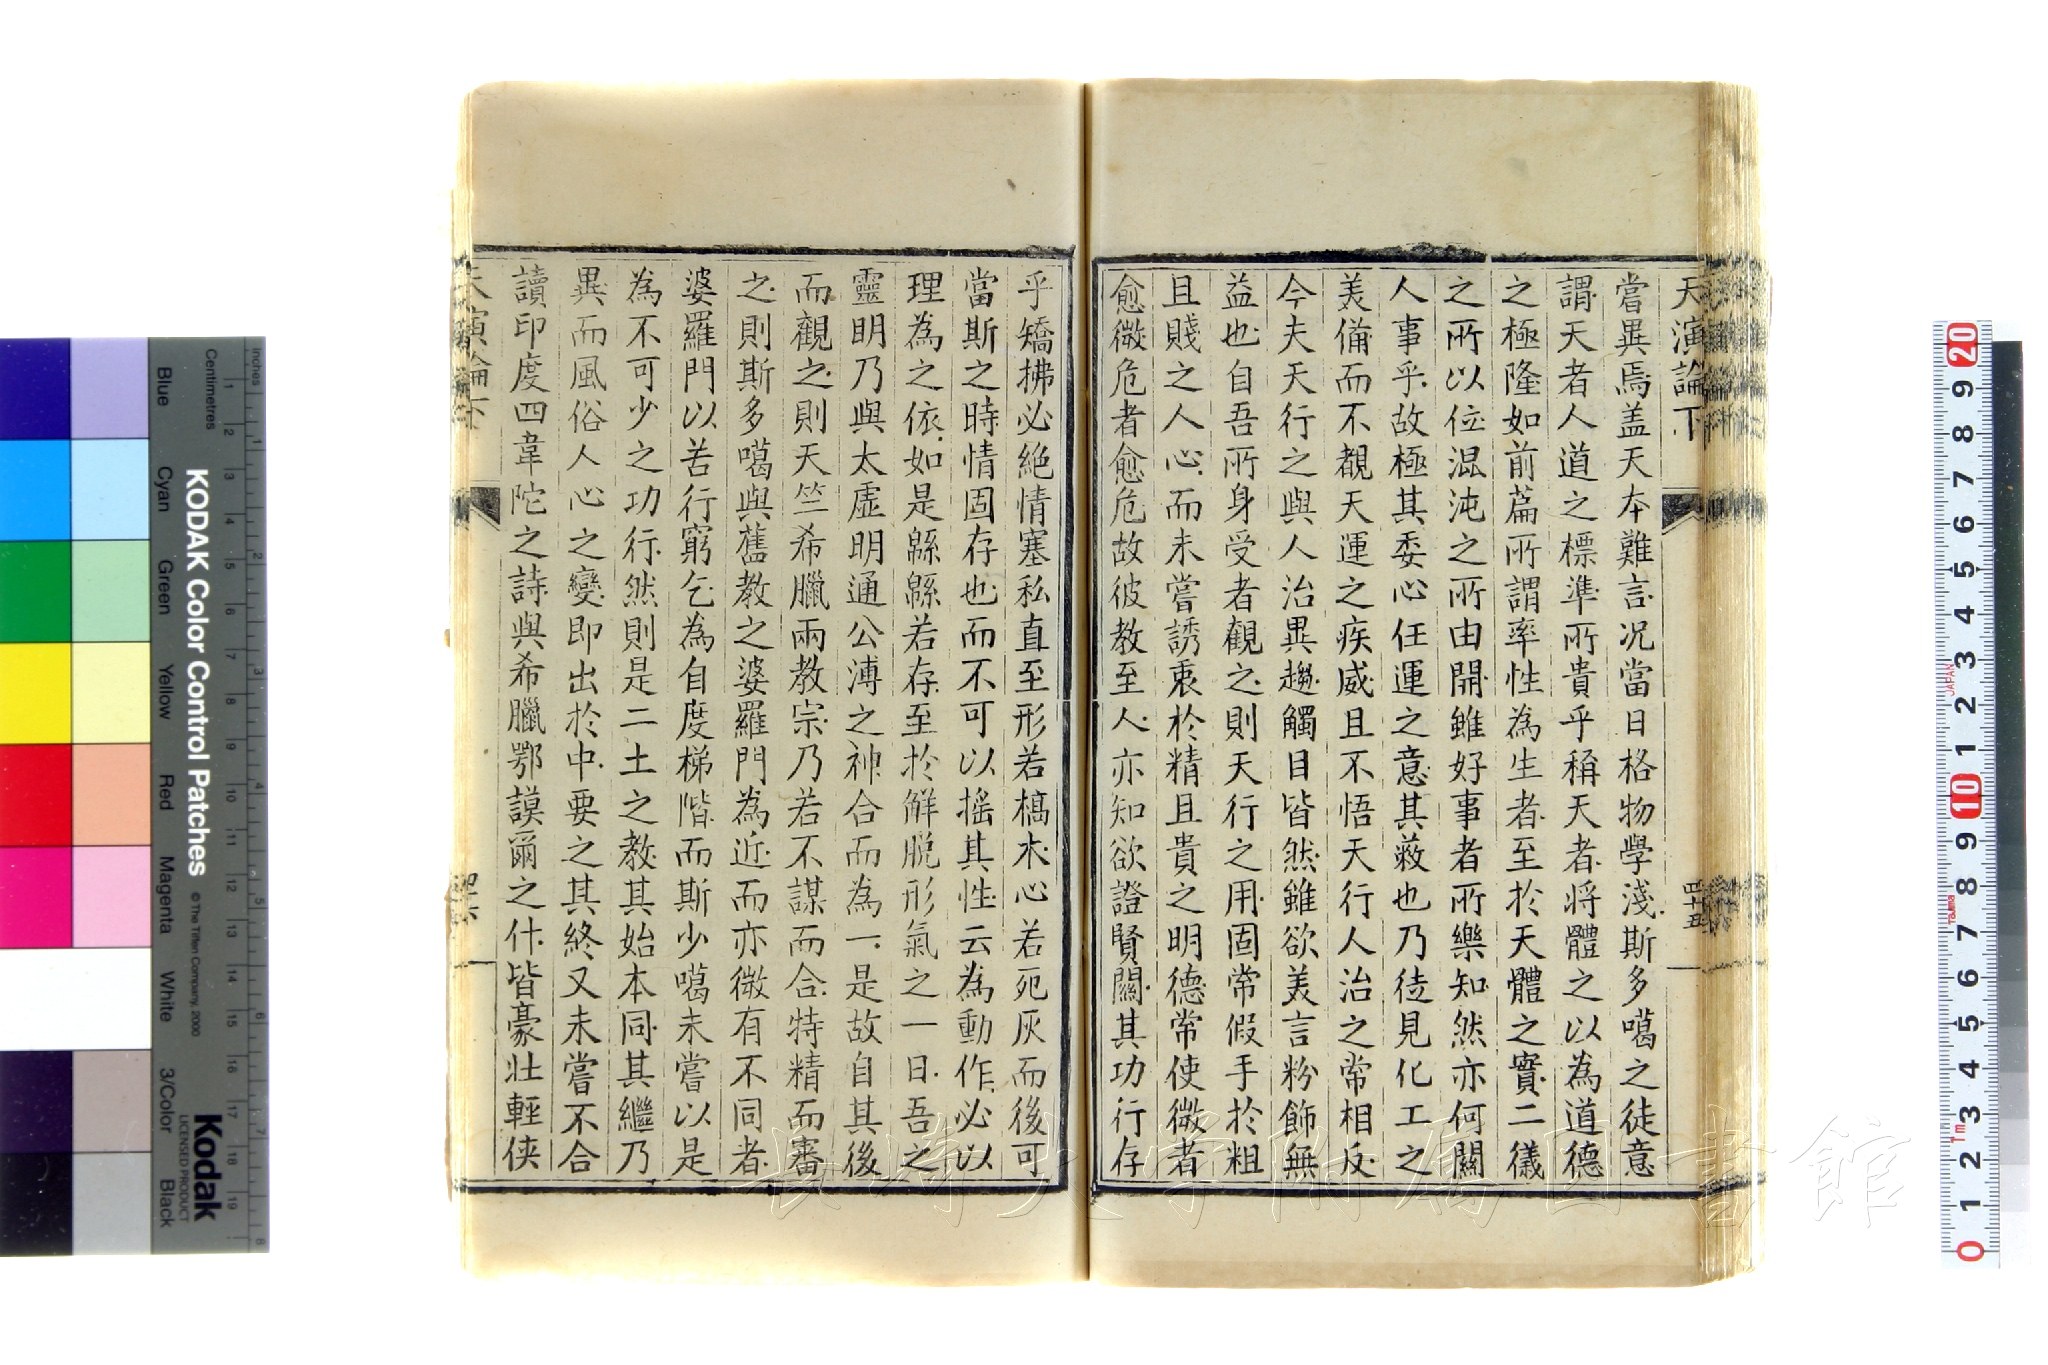 天演論下
四十五
嘗異焉盖天本難言况當日格物學淺斯多噶之徒意
謂天者人道之標準所貴乎稱天者將體之以為道德
之極隆如前篇所謂率性為生者至於天體之實二儀
之所以位混沌之所由開雖好事者所樂知然亦何關
人事乎故極其委心任運之意其蔽也乃徒見化工之
美備而不覩天運之疾威且不悟天行人治之常相反
今夫天行之與人治異趨觸目皆然雖欲美言粉飾無
益也自吾所身受者觀之則天行之用固常假手於粗
且賤之人心而未嘗誘衷於精且貴之明德常使微者
愈微危者愈危故彼教至人亦知欲證賢關其功行存
乎矯拂必絕情塞私直至形若槁木心若死灰而後可
當斯之時情固存也而不可以搖其性云為動作必以
理為之依如是緜緜若存至於解脫形氣之一日吾之
靈明乃與太虛明通公溥之神合而為一是故自其後
而觀之則天竺希臘兩教宗乃若不謀而合特精而審
之則斯多噶與舊教之婆羅門為近而亦微有不同者
婆羅門以苦行窮乞為自度梯階而斯多噶未嘗以是
為不可少之功行然則是二土之教其始本同其繼乃
異而風俗人心之變即出於中要之其終又未嘗不合
讀印度四韋陀之詩與希臘鄂謨爾之什皆豪壯輕俠
天演論下
KODAK Color Control Patches
© The Tiffen Company, 2000
Kodak
LICENSED PRODUCT
Inches
Centimetres
Blue
Cyan
Green
Yellow
Red
Magenta
White
3/Color
Black
長崎大学附属図書館
JAPAN